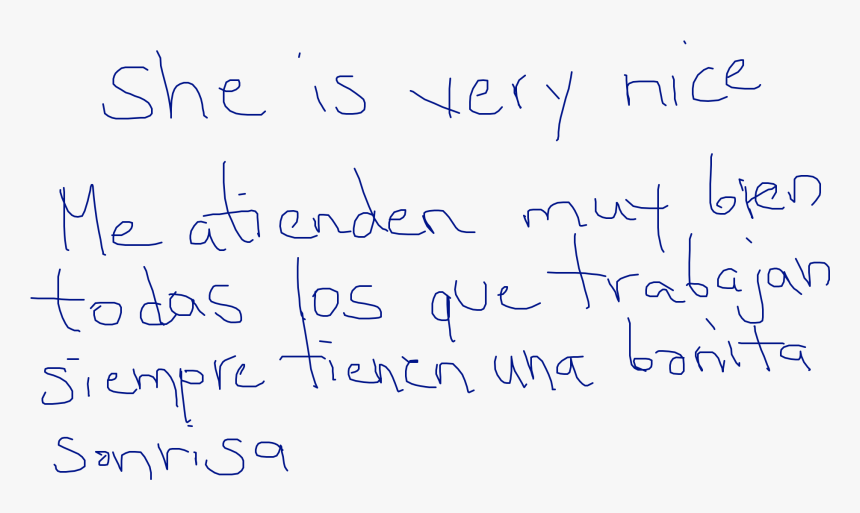 She is very nice
Me atienden muy bien
todas los que trabajan
siempre tienen una bonita
sonrisa